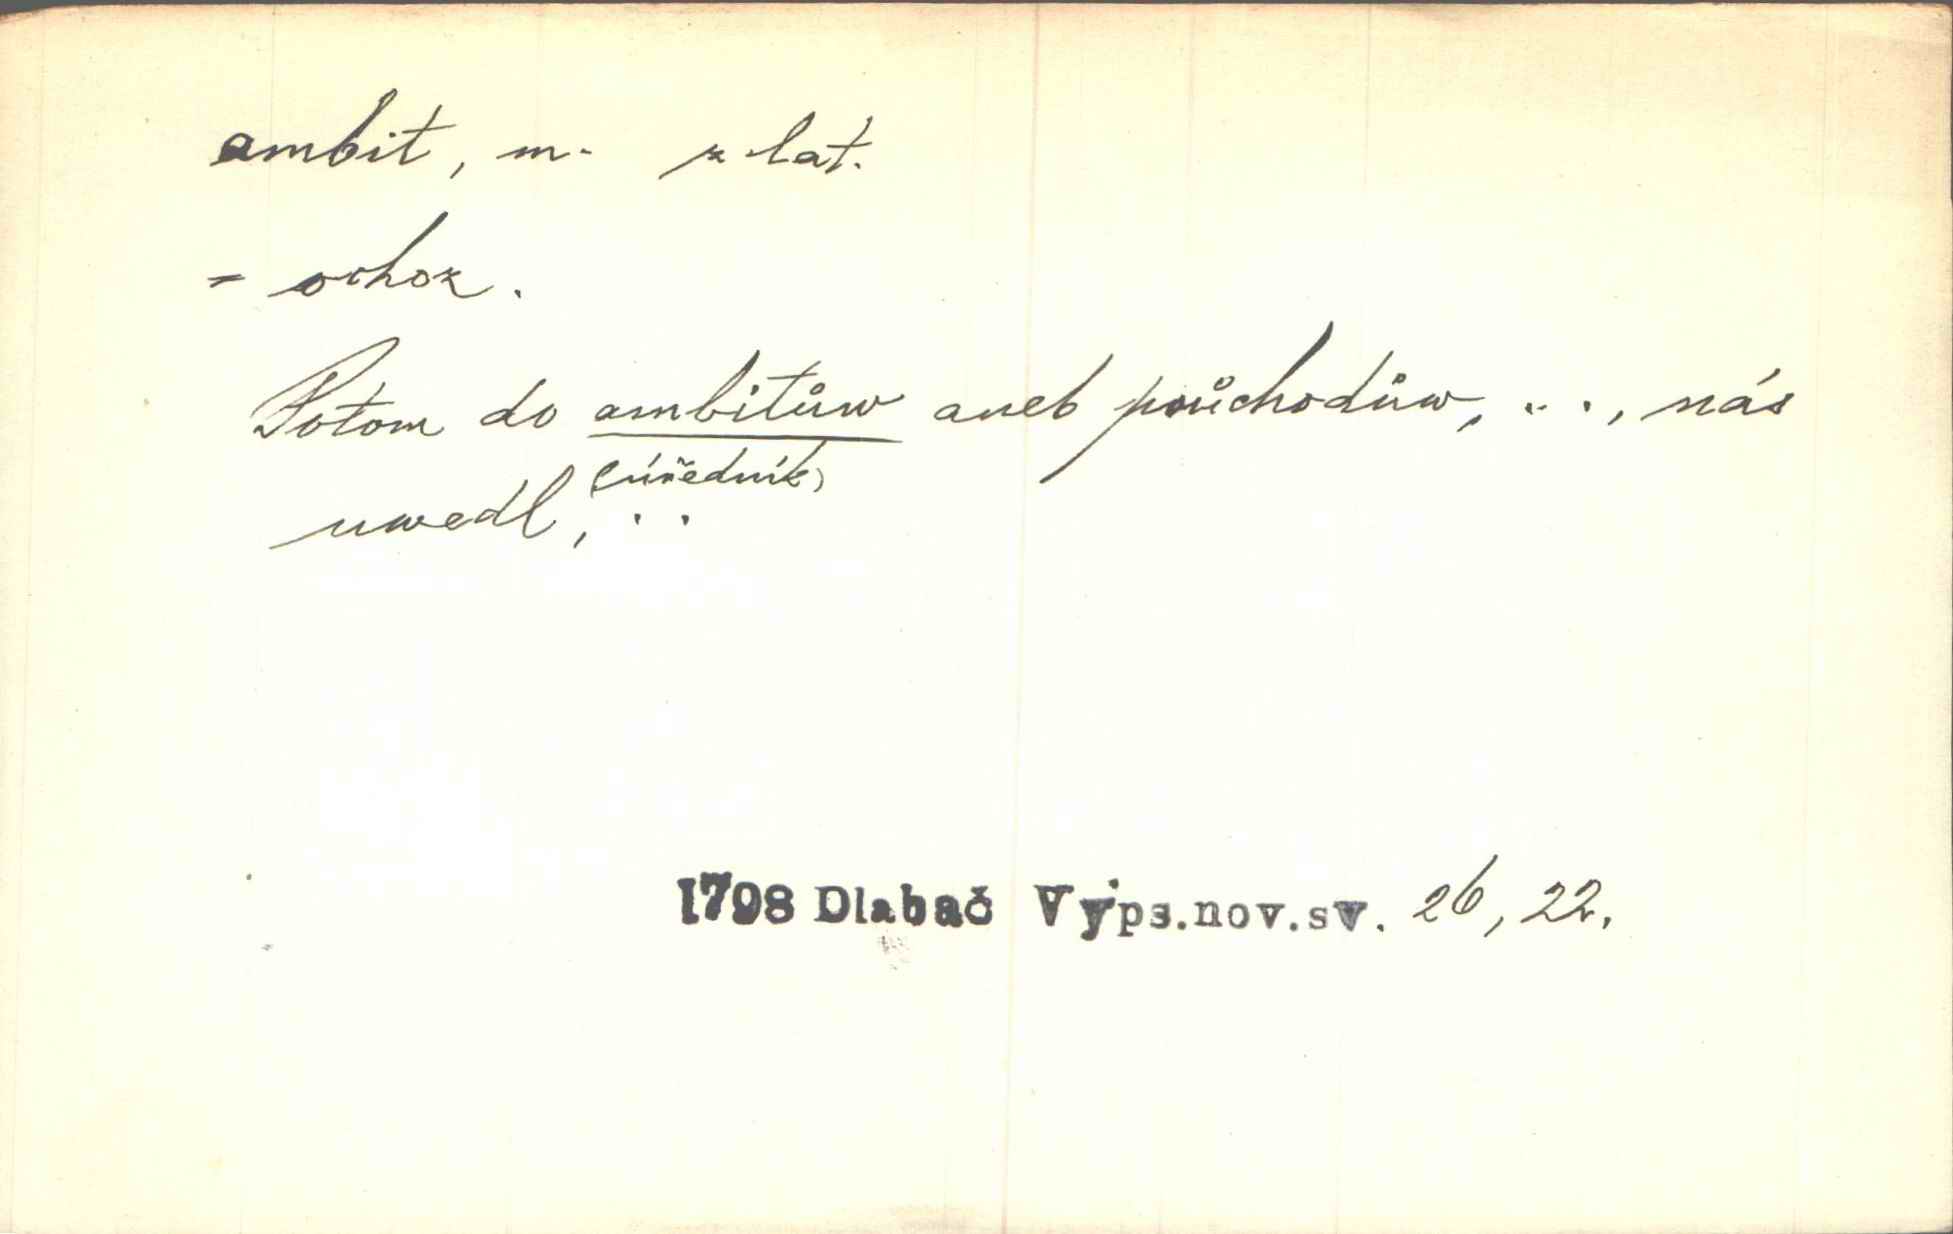 ambit, m. z lat.
= ochoz.
Potom do ambitůw aneb průchodůw, . . , nás
uwedl, (úředník) . .
1798 Dlabač Výps.nov.sv. 26, 22.